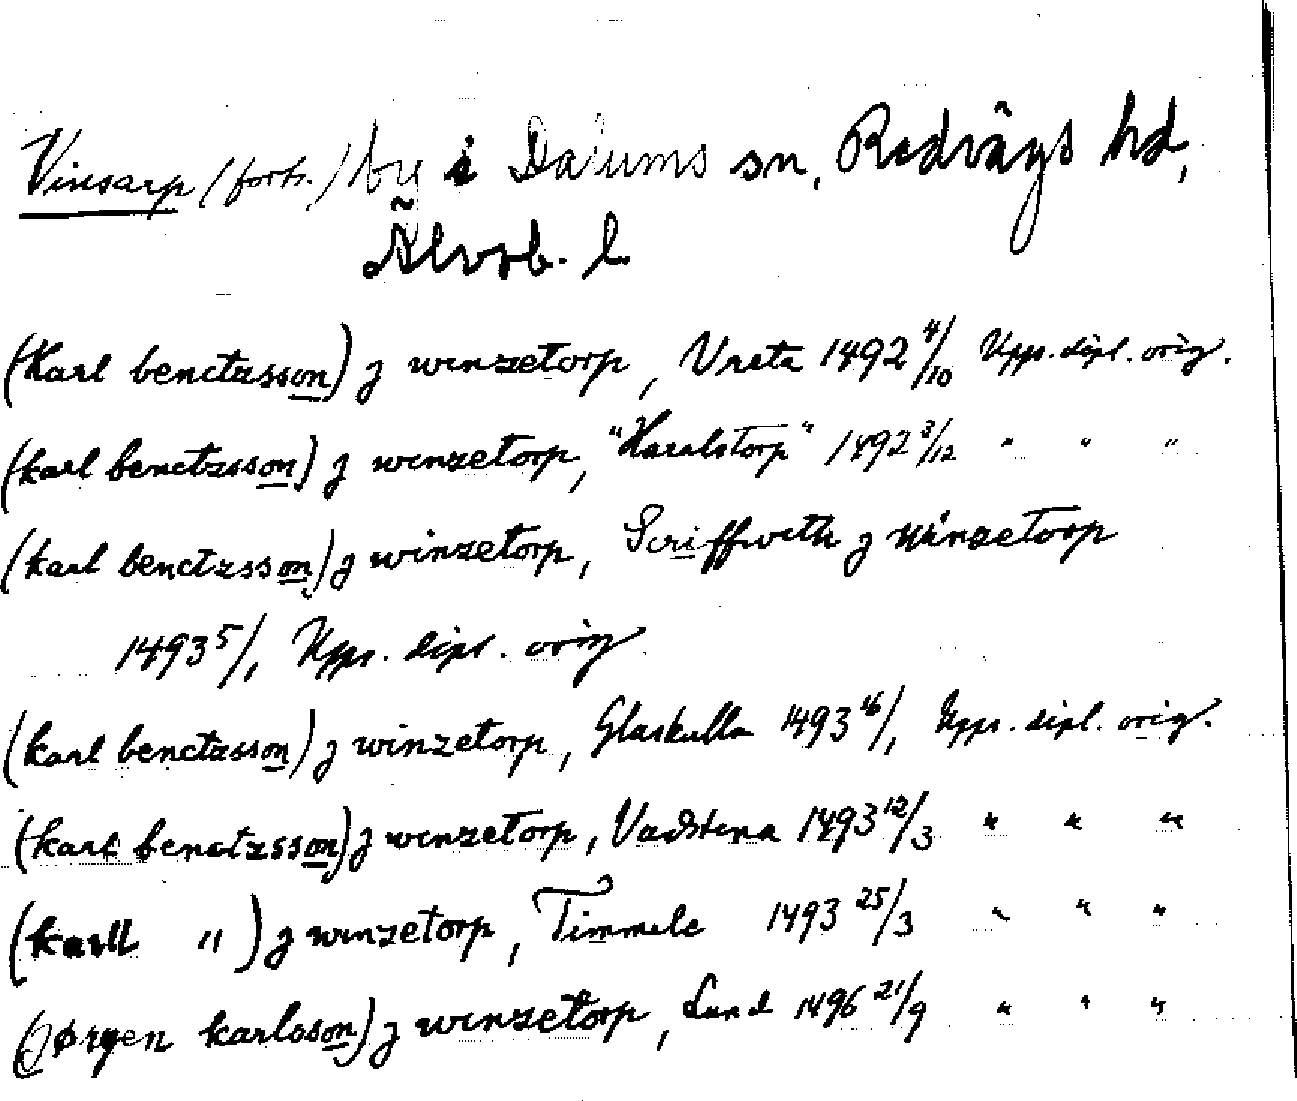 Vinsarp (forts.) by i Dalums sn, Redvägs hd,
Älvsb. l.
(karl benctzsson) j winzetorp, Vreta 1492 4/10 Upps. dipl. orig.
(karl benctzsson) j winzetorp, "Haralstorp" 1492 3/12 " " "
(karl benctzsson) j winzetorp, Scriffweth j winzetorp
1493 5/1, Upps. dipl. orig
(karl benctzsson) j winzetorp, Glaskulla 1493 16/1, Upps. dipl. orig.
(karl benctzsson) j winzetorp, Vadstena 1493 12/3 " " "
(karll ") j winzetorp, Timmele 1493 25/3 " " "
(Jørgen karlsson) j winzetorp, Lund 1496 21/9 " " "